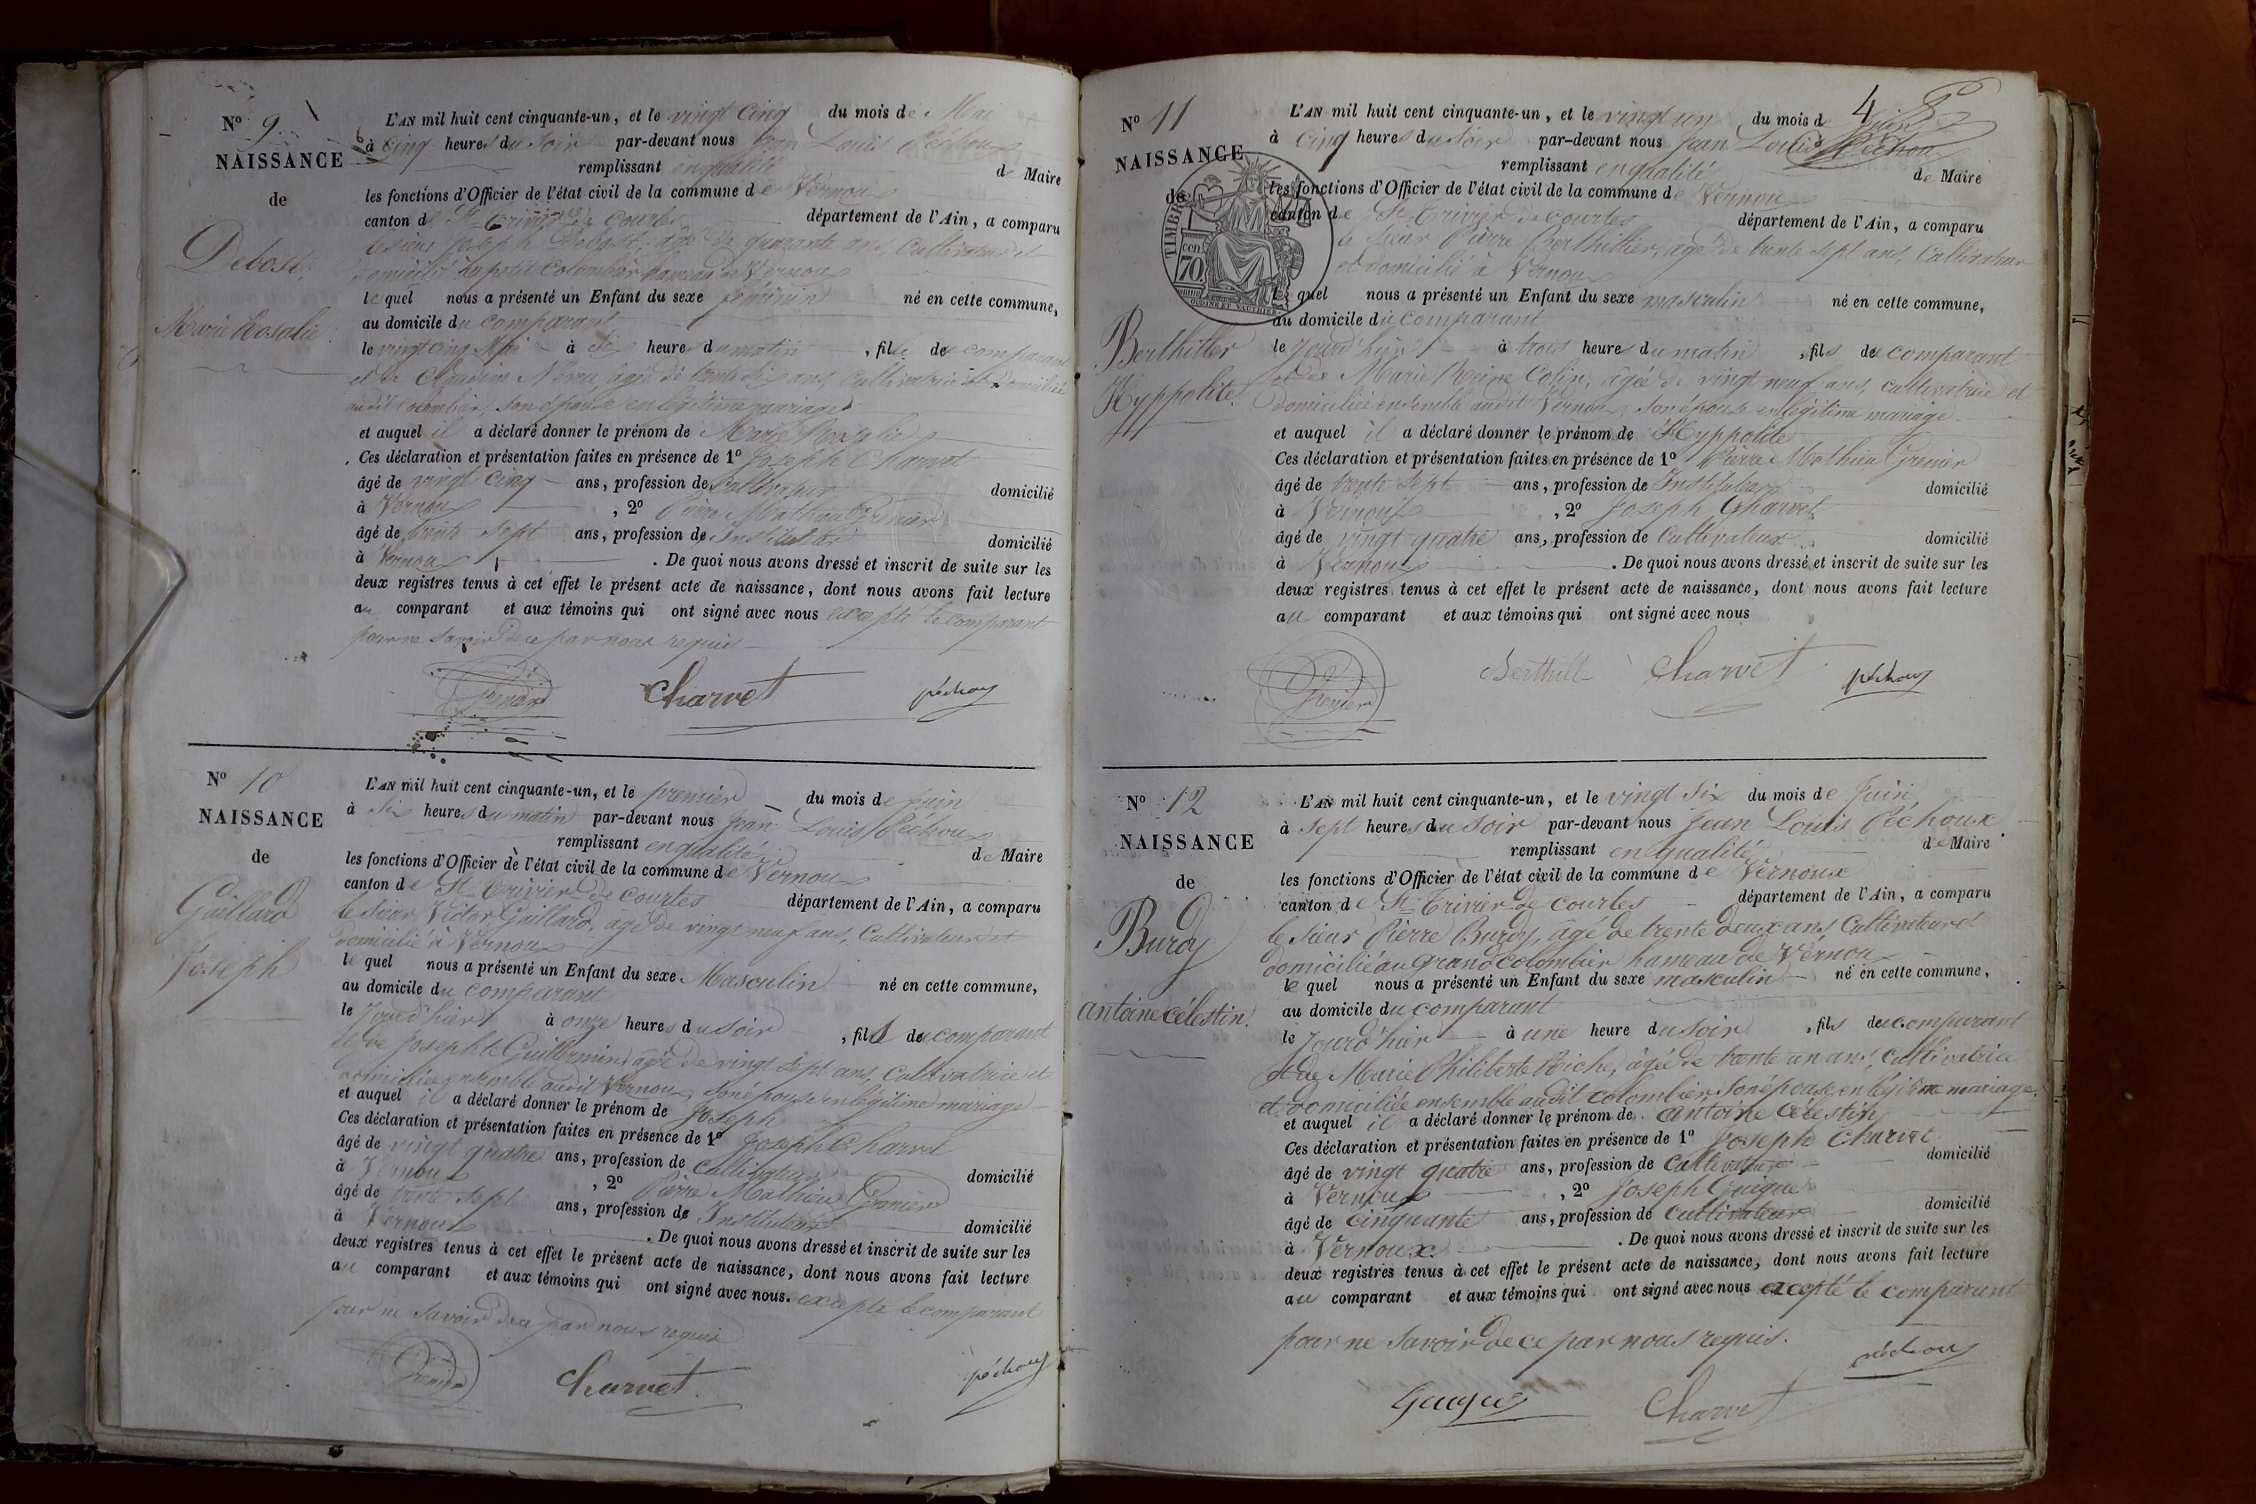 N° 9
NAISSANCE
de
Debost
Marie Rosalie
L'AN mil huit cent cinquante-un, et le vingt cinq du mois de Mai
à cinq heures du soir par-devant nous Jean Louis Péchoux
remplissant en qualité de Maire
les fonctions d'Officier de l'état civil de la commune de Vernoux
canton de St Trivier de Courtes département de l'Ain, a comparu
le sieur Joseph Debost, âgé de quarante ans, Cultivateur et
domicilié au petit Colombier hameau de Vernoux
le quel nous a présenté un Enfant du sexe féminin né en cette commune,
au domicile du comparant
le vingt cinq Mai à six heures du matin, fille du comparant
et de Néron, âgée de trente six ans, cultivatrice et domiciliée
audit Colombier, son épouse en légitime mariage
et auquel il a déclaré donner le prénom de Marie Rosalie
Ces déclaration et présentation faites en présence de 1° Joseph Charvet
âgé de vingt cinq ans, profession de Cultivateur domicilié
à Vernoux, 2° Pierre Mathieu Grenier
âgé de trente sept ans, profession de Instituteur domicilié
à Vernoux. De quoi nous avons dressé et inscrit de suite sur les
deux registres tenus à cet effet le présent acte de naissance, dont nous avons fait lecture
au comparant et aux témoins qui ont signé avec nous excepté le comparant
pour ne savoir de ce par nous requis
Grenier Charvet péchoux
N° 10
NAISSANCE
de
Guillard
Joseph
L'AN mil huit cent cinquante-un, et le premier du mois de Juin
à six heures du matin par-devant nous Jean Louis Péchoux
remplissant en qualité de Maire
les fonctions d'Officier de l'état civil de la commune de Vernoux
canton de St Trivier de Courtes département de l'Ain, a comparu
le sieur Victor Guillard, âgé de vingt neuf ans, Cultivateur et
domicilié à Vernoux
le quel nous a présenté un Enfant du sexe Masculin né en cette commune,
au domicile du comparant
le Jourd'hier à onze heures du soir, fils du comparant
et de Josephte Guillermin, âgée de vingt sept ans, Cultivatrice et
domiciliée ensemble audit Vernoux, son épouse en légitime mariage
et auquel il a déclaré donner le prénom de Joseph
Ces déclaration et présentation faites en présence de 1° Joseph Charvet
âgé de vingt quatre ans, profession de Cultivateur domicilié
à Vernoux, 2° Pierre Mathieu Grenier
âgé de trente sept ans, profession de Instituteur domicilié
à Vernoux. De quoi nous avons dressé et inscrit de suite sur les
deux registres tenus à cet effet le présent acte de naissance, dont nous avons fait lecture
au comparant et aux témoins qui ont signé avec nous. excepté le comparant
pour ne savoir de ce par nous requis
Grenier Charvet péchoux
4
N° 11
NAISSANCE
de
Berthiller
Hyppolite
TIMBRE
70 cen
L'AN mil huit cent cinquante-un, et le vingt un du mois de Juin
à cinq heures du soir par-devant nous Jean Louis Péchoux
remplissant en qualité de Maire
les fonctions d'Officier de l'état civil de la commune de Vernoux
canton de St Trivier de Courtes département de l'Ain, a comparu
le sieur Pierre Berthiller, âgé de trente sept ans, Cultivateur
et domicilié à Vernoux
le quel nous a présenté un Enfant du sexe masculin né en cette commune,
au domicile du comparant
le Jourd'hier à trois heures du matin, fils du comparant
et de Marie Reine Colin, âgée de vingt neuf ans, cultivatrice et
domiciliée ensemble audit Vernoux, son épouse en légitime mariage
et auquel il a déclaré donner le prénom de Hyppolite
Ces déclaration et présentation faites en présence de 1° Pierre Mathieu Grenier
âgé de trente sept ans, profession de Instituteur domicilié
à Vernoux, 2° Joseph Charvet
âgé de vingt quatre ans, profession de Cultivateur domicilié
à Vernoux. De quoi nous avons dressé et inscrit de suite sur les
deux registres tenus à cet effet le présent acte de naissance, dont nous avons fait lecture
au comparant et aux témoins qui ont signé avec nous
Grenier Berthill Charvet péchoux
N° 12
NAISSANCE
de
Burdy
antoine célestin.
L'AN mil huit cent cinquante-un, et le vingt six du mois de Juin
à sept heures du soir par-devant nous Jean Louis Péchoux
remplissant en qualité de Maire
les fonctions d'Officier de l'état civil de la commune de Vernoux
canton de St Trivier de Courtes département de l'Ain, a comparu
le sieur Pierre Burdy, âgé de trente deux ans, Cultivateur et
domicilié au grand Colombier hameau de Vernoux
le quel nous a présenté un Enfant du sexe masculin né en cette commune,
au domicile du comparant
le Jourd'hier à une heure du soir, fils du comparant
et de Marie Philiberte Riche, âgée de trente un ans, Cultivatrice
et domiciliée ensemble audit Colombier, son épouse en légitime mariage.
et auquel il a déclaré donner le prénom de antoine célestin
Ces déclaration et présentation faites en présence de 1° Joseph Charvet
âgé de vingt quatre ans, profession de Cultivateur domicilié
à Vernoux, 2° Joseph Guigue
âgé de cinquante ans, profession de Cultivateur domicilié
à Vernoux. De quoi nous avons dressé et inscrit de suite sur les
deux registres tenus à cet effet le présent acte de naissance, dont nous avons fait lecture
au comparant et aux témoins qui ont signé avec nous excepté le comparant
pour ne savoir de ce par nous requis.
péchoux
Guigue Charvet